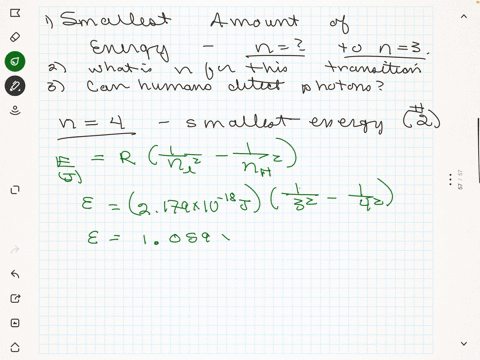 1) Smallest Amount of
Energy - n=? to n=3.
2) what is n for this transition
3) Can humans detect photons?
n = 4 - smallest energy (#2)
E (J) = R (1/n_L² - 1/n_H²)
E = (2.179×10⁻¹⁸ J) (1/3² - 1/4²)
E = 1.059